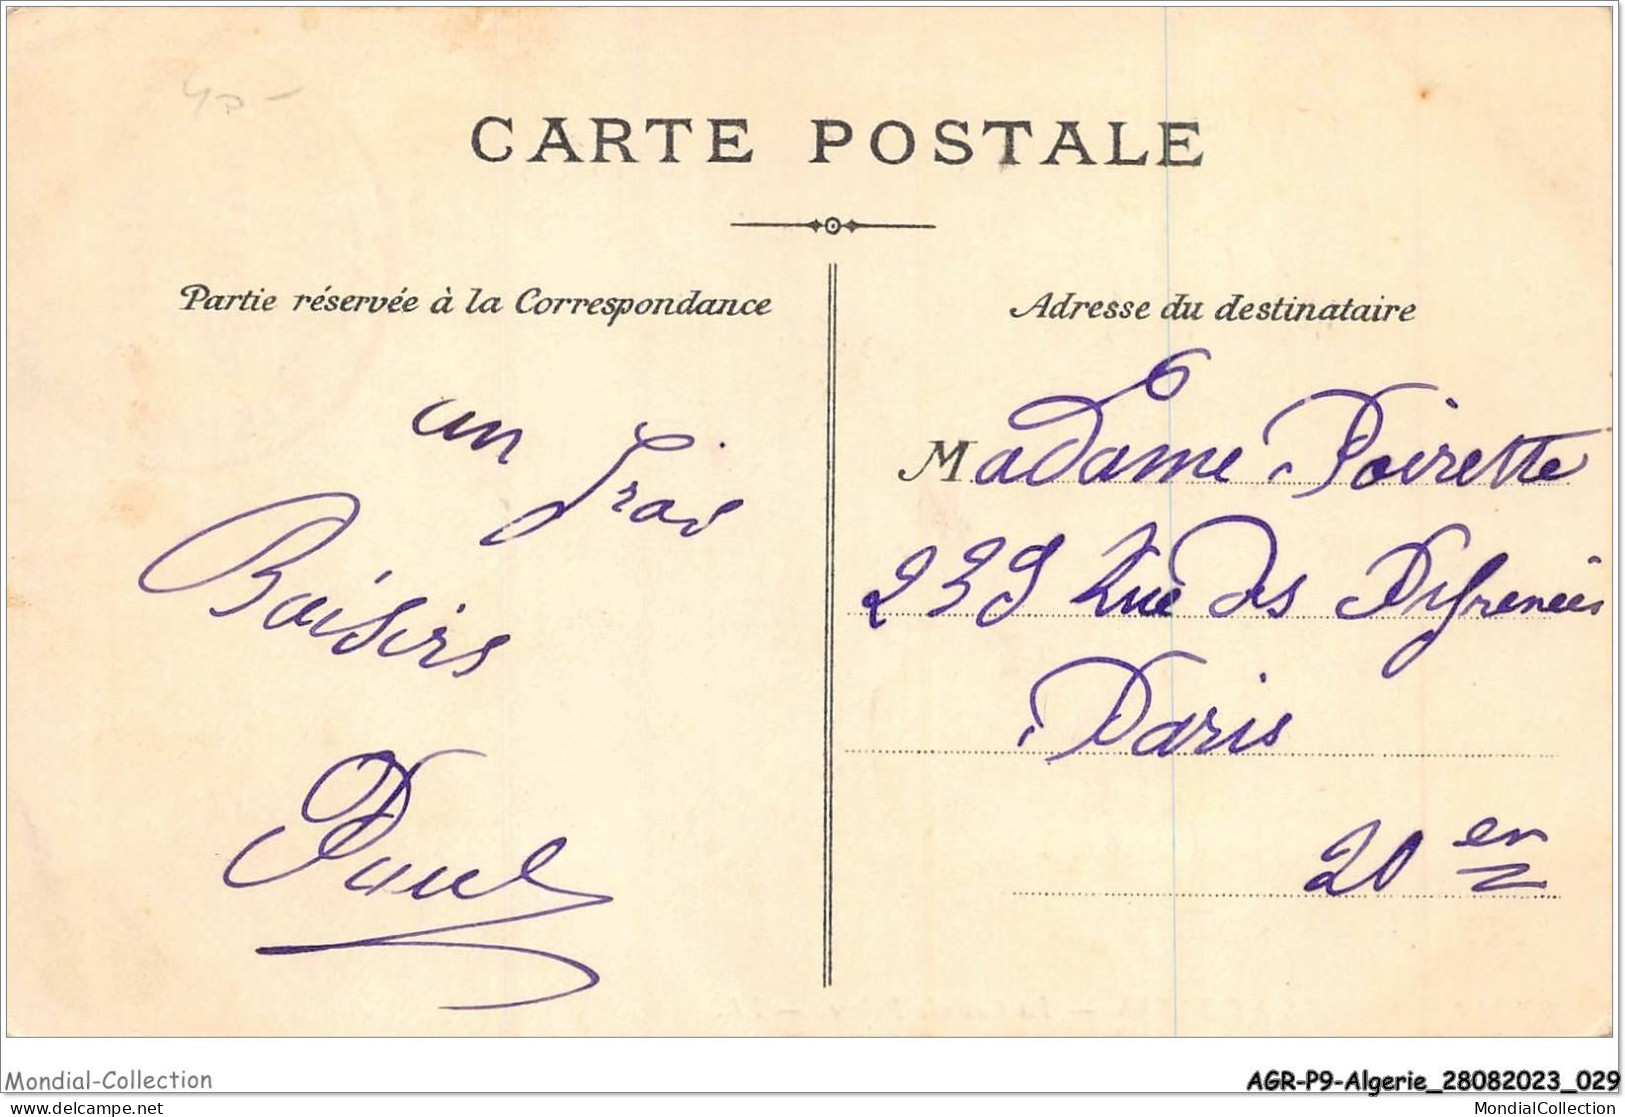 40-
CARTE POSTALE
Partie réservée à la Correspondance
Adresse du destinataire
un
Boisirs
Paul
Madame Poirette
239 Rue des
Paris
20 em
Mondial-Collection
AGR-P9-Algerie_28082023_029
delcampe.net
MondialCollection